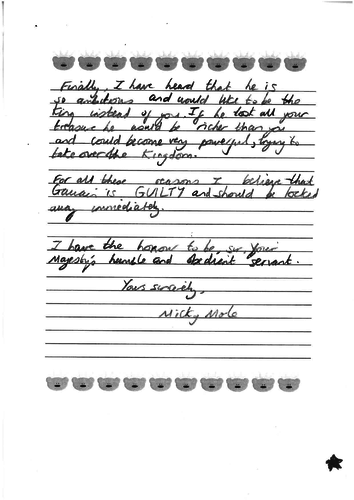 Finally, I have heard that he is
so ambitious and would like to be the
King instead of you. If he took all your
treasure he would be richer than you
and could become very powerful, trying to
take over the Kingdom.
For all these reasons I believe that
Gawain is GUILTY and should be locked
away immediately.
I have the honour to be, sir, your
Majesty's humble and obedient servant.
Yours sincerely,
Micky Mole